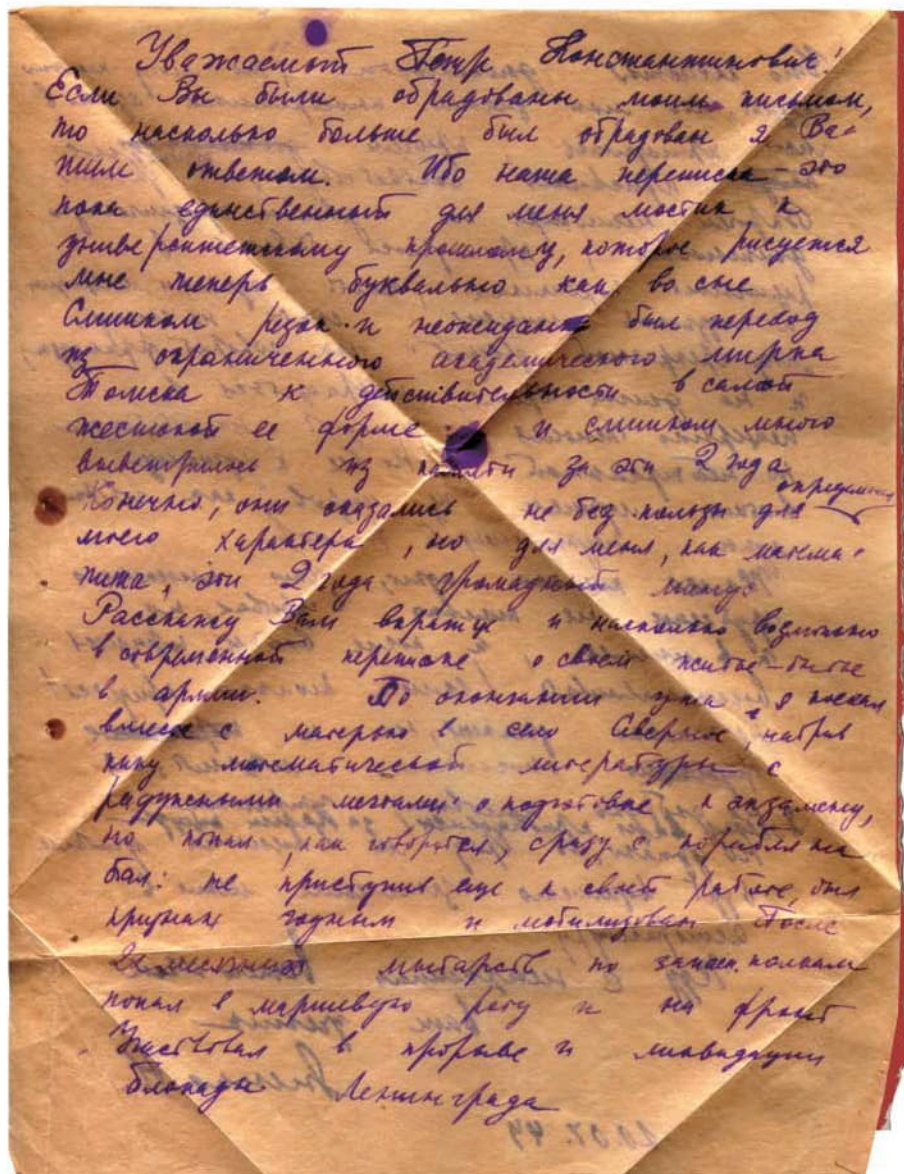 Уважаемый Петр Константинович!
Если Вы были обрадованы моим письмом,
то насколько больше был обрадован я Ва-
шим ответом. Ибо наша переписка - это
пока единственный для меня мостик к
университетскому прошлому, которое рисуется
мне теперь буквально как во сне
Слишком резок и неожидан был переход
из ограниченного академического мирка
Томска к действительности в самой
жестокой ее форме и слишком много
выветрилось из памяти за эти 2 года
Конечно, они оказались не без пользы для определения
моего характера, но для меня, как матема-
тика, эти 2 года громадный минус
Расскажу Вам вкратце и насколько возможно
в современной переписке о своем житье-бытье
в армии. По окончании я поехал
вместе с матерью в село Северное, набрав
кипу математической литературы с
радужными мечтами о подготовке к экзамену,
но попал, как говорится, сразу с корабля на
бал: не приступив еще к своей работе, был
признан годным и мобилизован После
мытарств по запасн. полкам
попал в маршевую роту и на фронт
Участвовал в прорыве и ликвидации
блокады Ленинграда